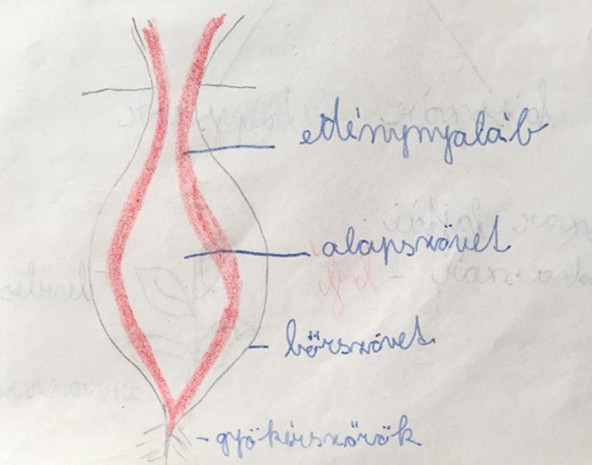 edénynyaláb
alapszövet
bőrszövet
- gyökérszőrök